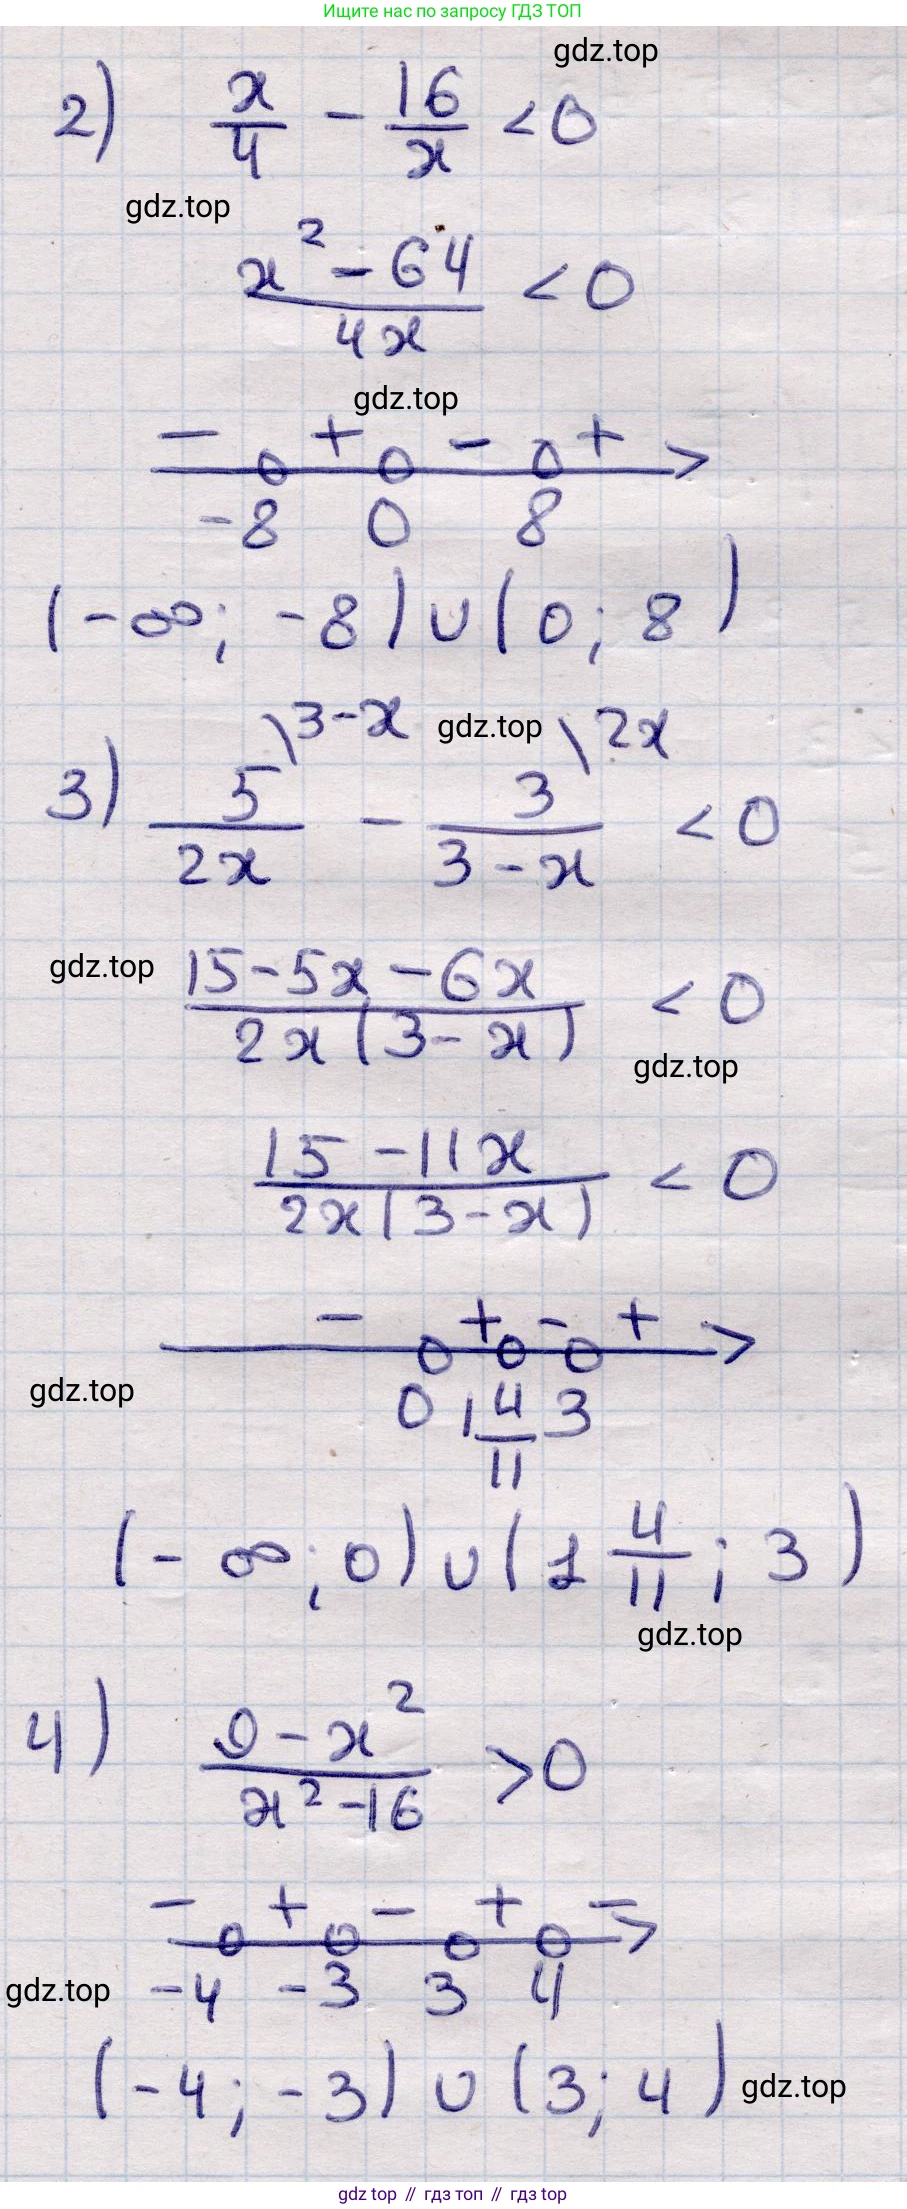 Ищите нас по запросу ГДЗ ТОП
gdz.top
2) x/4 - 16/x < 0
gdz.top
x² - 64 / 4x < 0
gdz.top
- + - +
-8 0 8
(-∞; -8) ∪ (0; 8)
gdz.top
3) 5\3-x / 2x - 3\2x / 3-x < 0
gdz.top
15 - 5x - 6x / 2x(3-x) < 0
gdz.top
15 - 11x / 2x(3-x) < 0
- + - +
gdz.top
0 1 4/11 3
(-∞; 0) ∪ (1 4/11; 3)
gdz.top
4) 9 - x² / x² - 16 > 0
- + - + -
gdz.top
-4 -3 3 4
(-4; -3) ∪ (3; 4)
gdz.top
gdz top // гдз топ // gdz top